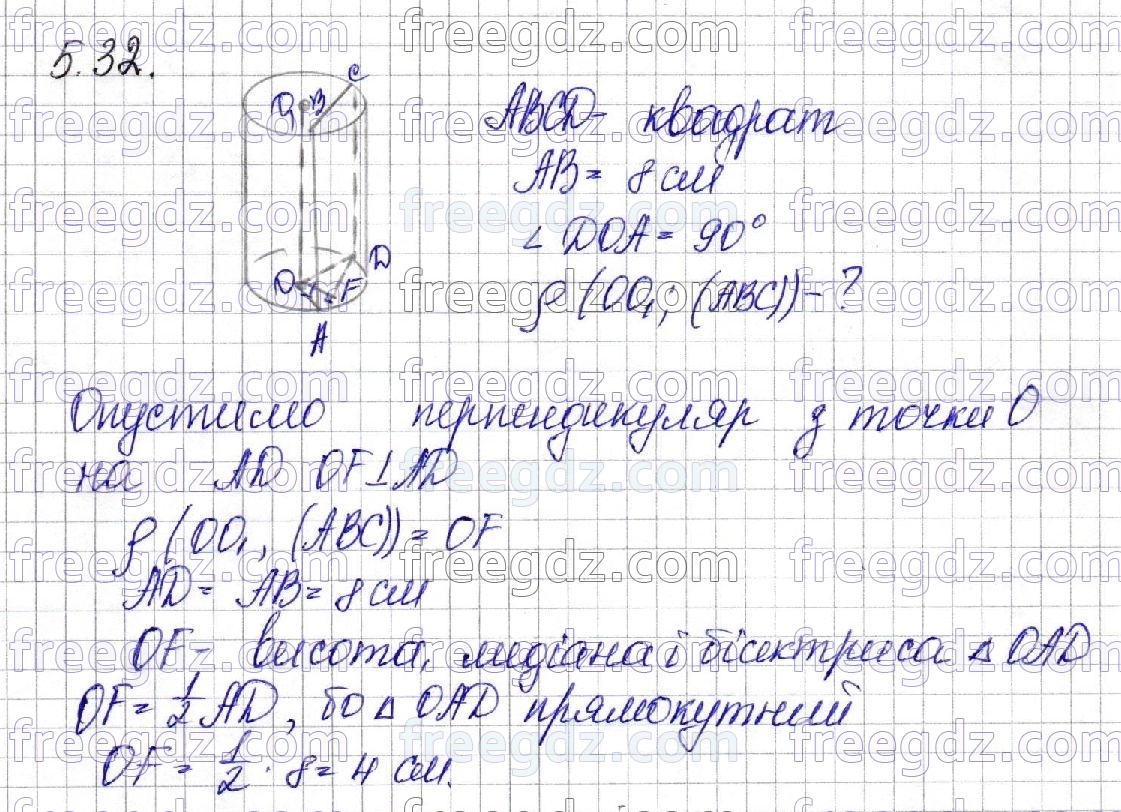 5.32.
ABCD- квадрат
AB = 8 см
∠ DOA = 90°
ρ (OO₁; (ABC)) - ?
O₁ B C
O F D
A
Опустимо перпендикуляр з точки O
на AD OF⊥AD
ρ (OO₁, (ABC)) = OF
AD = AB = 8 см
OF- висота, медіана і бісектриса △ OAD
OF = 1/2 AD, бо △ OAD прямокутний
OF = 1/2 · 8 = 4 см.
freegdz.com